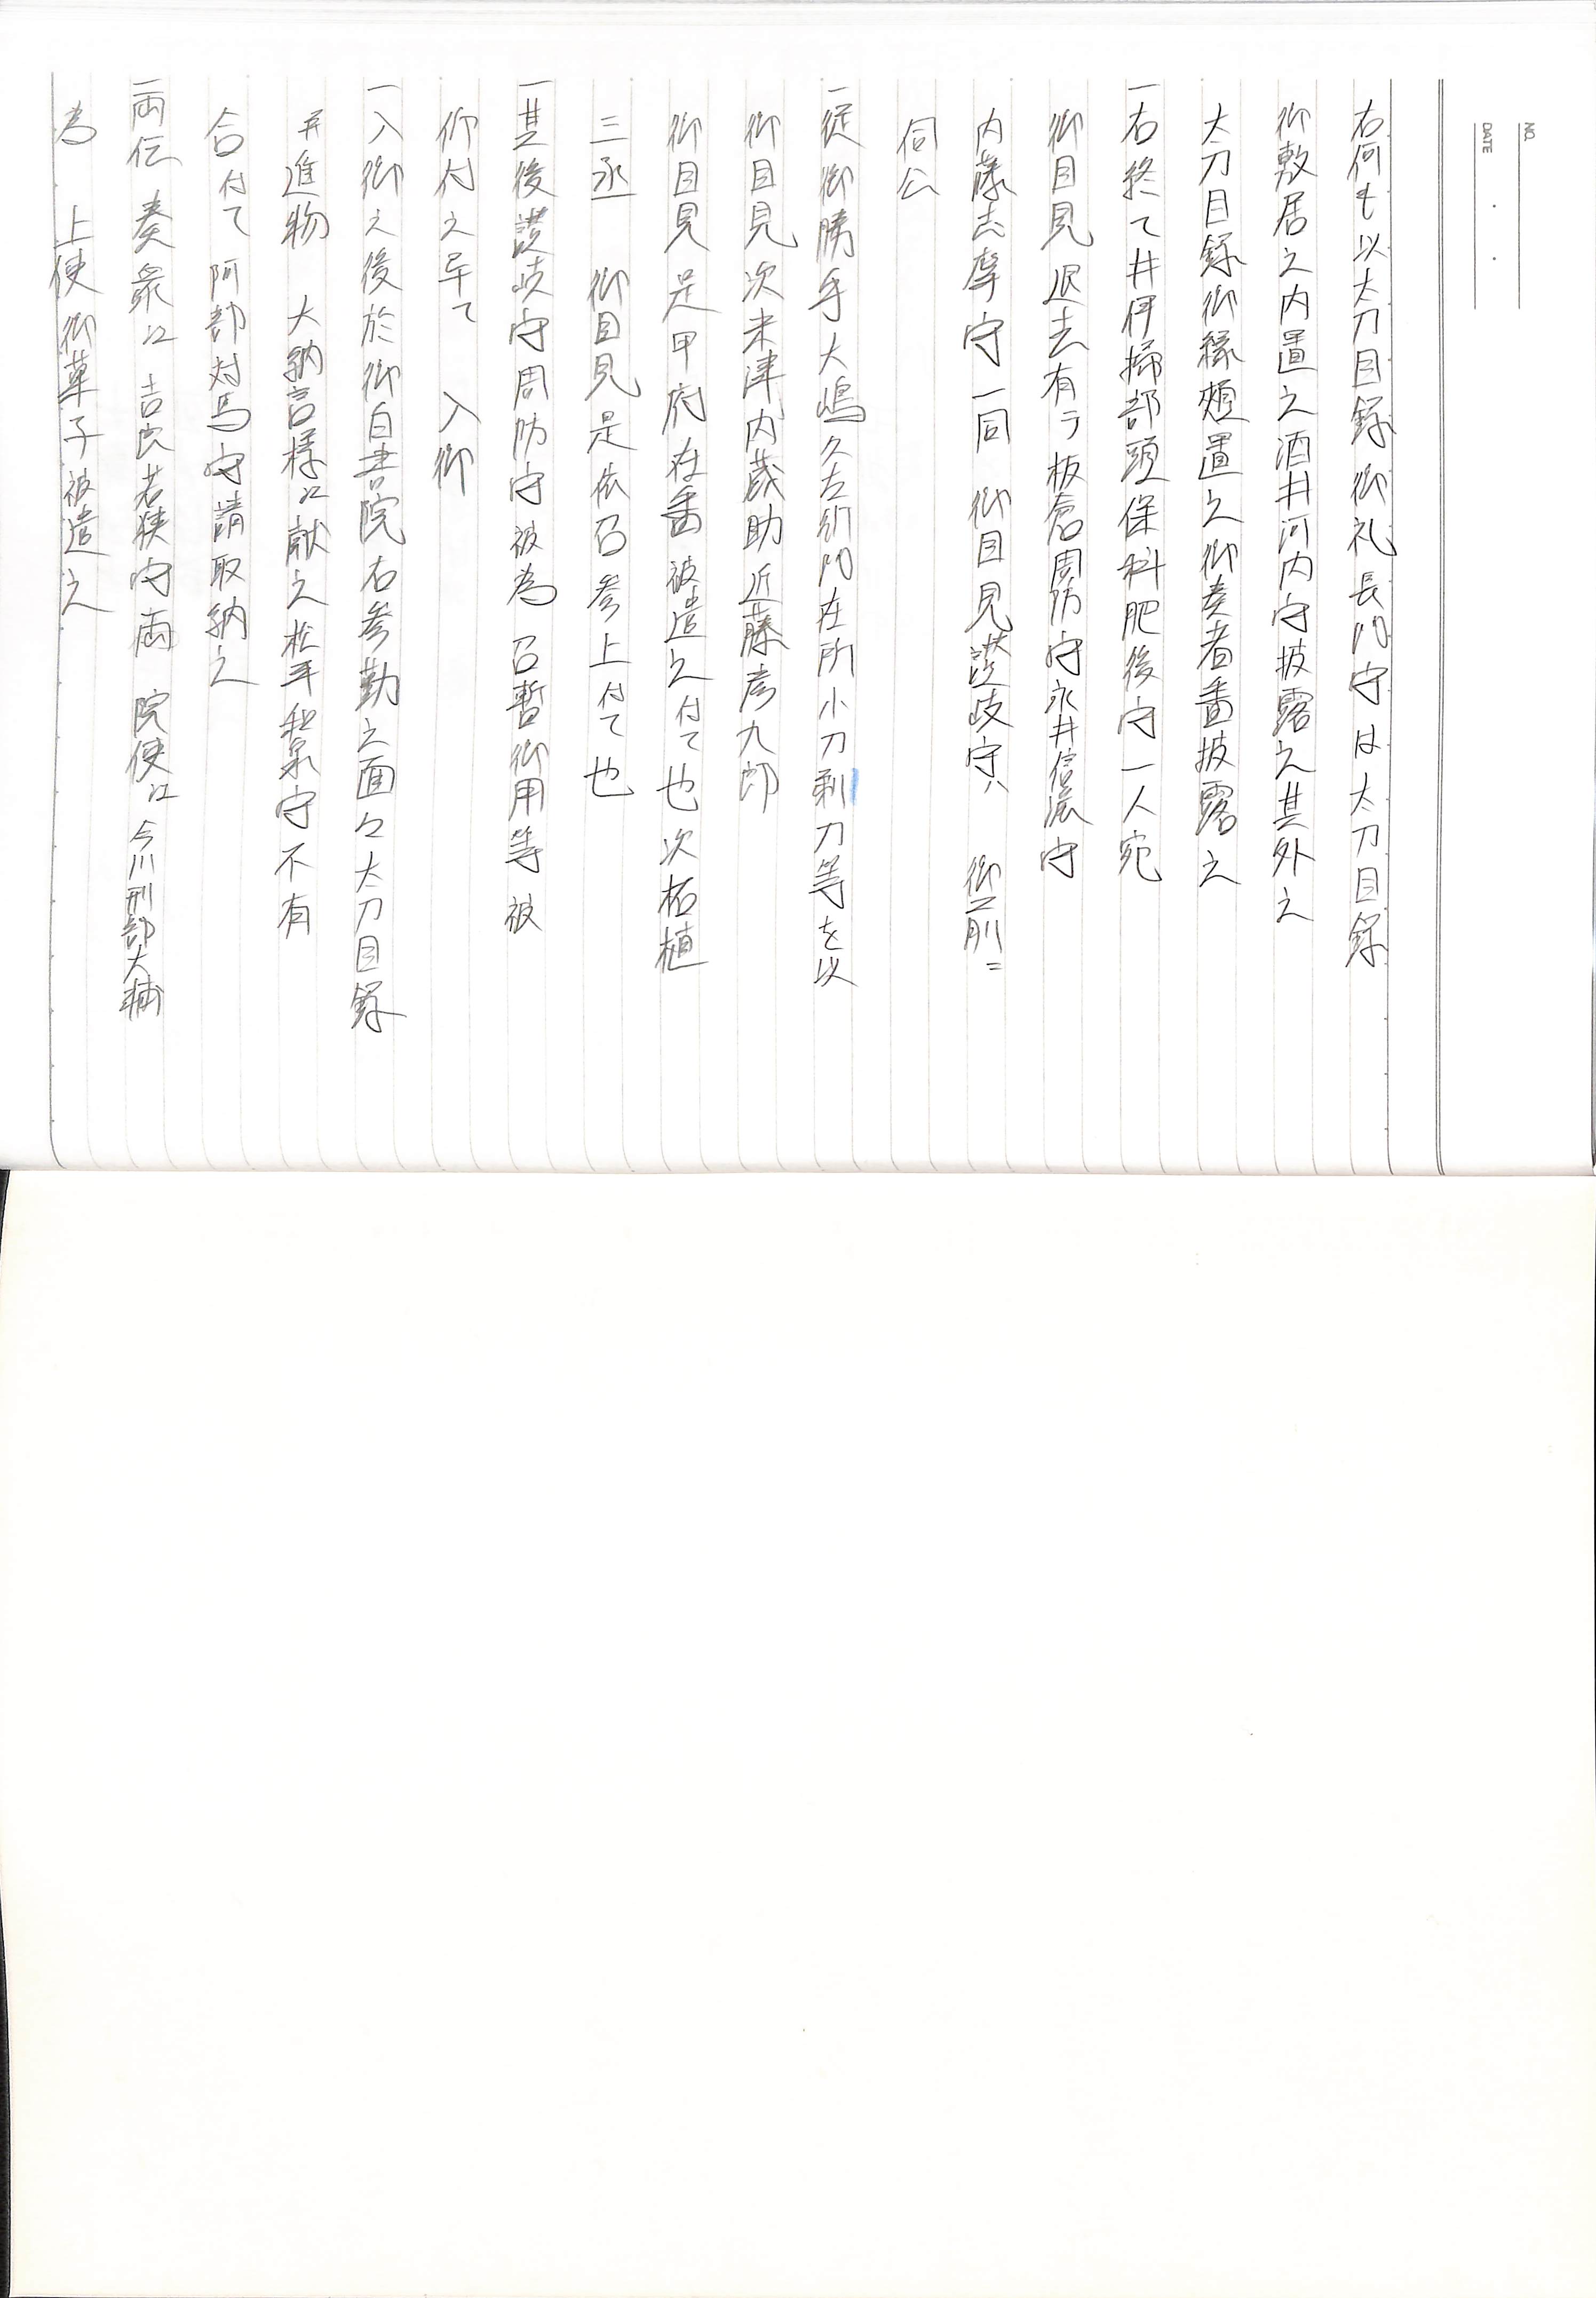 NO.
DATE
右何も以太刀目録御礼長門守は太刀目録
御敷居之内置之酒井河内守披露之其外之
太刀目録御縁頬置之御奏者番披露之
一右終て井伊掃部頭保科肥後守一人宛
御目見退去有テ板倉周防守永井信濃守
内藤志摩守一同 御目見讃岐守ハ 御前ニ
伺公
一従御勝手大嶋久左衛門在所小刀剃刀等を以
御目見次米津内蔵助近藤彦九郎
御目見 是甲府在番被遣之付て也次柘植
三丞 御目見是依召参上付て也
一其後讃岐守周防守被為 召暫御用等被
仰付之畢て 入御
一入御之後於御白書院右参勤之面々太刀目録
并進物 大納言様江献之松平和泉守不有
合付て阿部対馬守請取納之
一両伝 奏衆江吉良若狭守両 院使江今川刑部大輔
為 上使御菓子被遣之